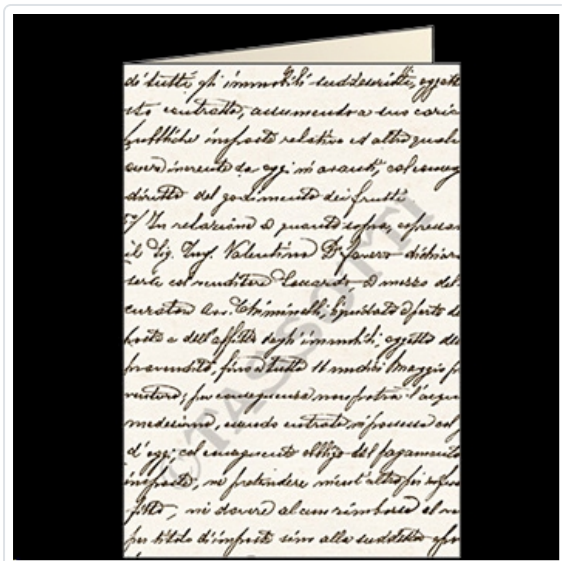 di tutti gli immobili suddescritti, oggett
sto contratto, assumendo a suo caric
pubbliche imposte relative ed altro
onere inerente da oggi in avanti, col conseg
diritto del godimento dei frutti
5°/ In relazione a quanto sopra, espressa
il Sig. Ing. Valentino Dr. Favero dichiara
sera col venditore a mezzo del
curatore Avv. Chiminelli,
poste e dell'affitto degli immobili, oggetto de
fino a tutto 11 undici Maggio p
venturo; per conseguenza non potrà l'acqui
medesimo, essendo entrato in possesso col
d'oggi; col conseguente obbligo del pagamento
imposte, ne pretendere nient'altro per
fitto, ne dovere alcun rimborso al
per titolo d'imposte sino alla suddetta
©TASSOTTI